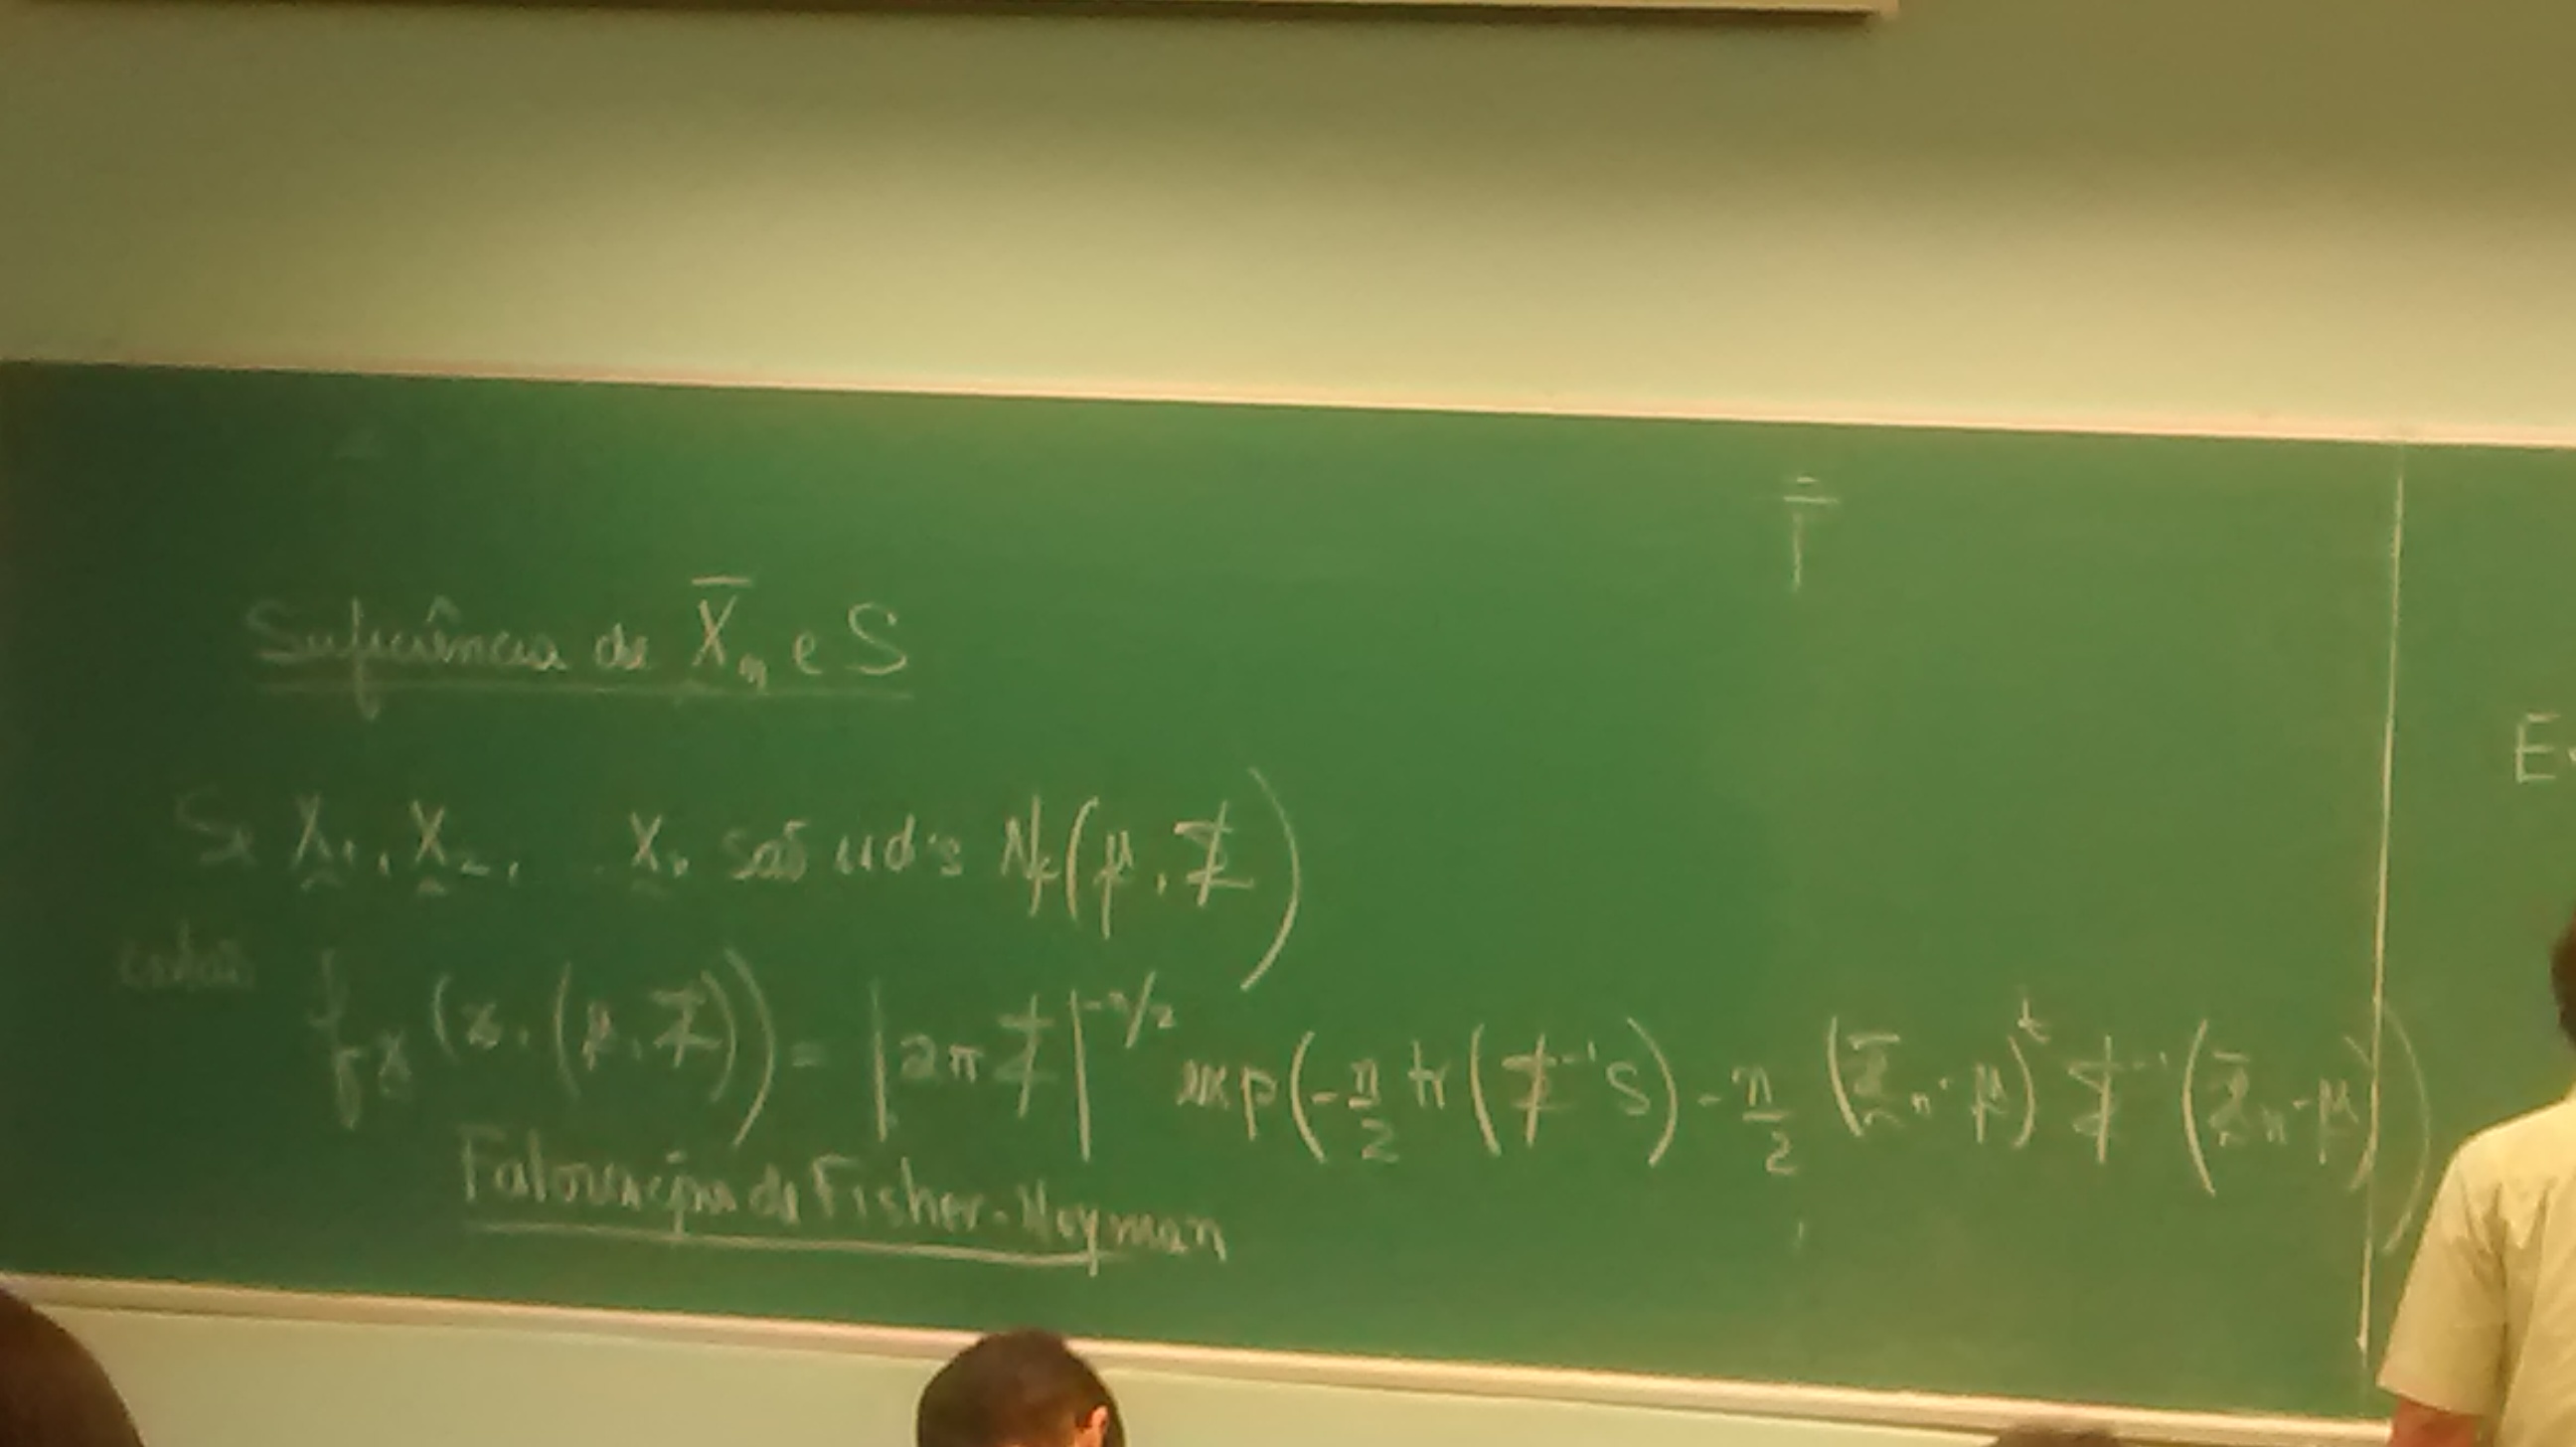 T̄
Suficiência de X̄ₙ e S
Se X₁, X₂, . Xₙ são iid's Nₚ(μ, Σ)
E
então f_X(x, (μ, Σ)) = |2πΣ|^(-n/2) exp(-n/2 tr(Σ⁻¹S) - n/2 (x̄ₙ - μ)ᵗ Σ⁻¹ (x̄ₙ - μ))
Fatoração de Fisher-Neyman